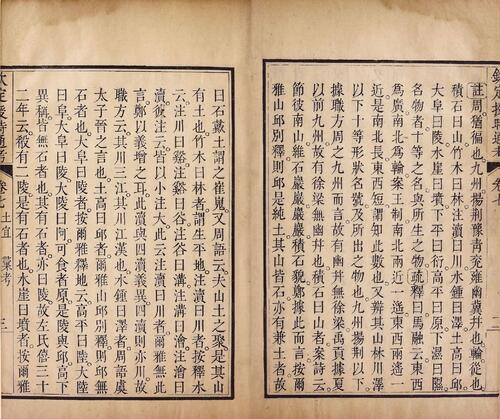 註周猶徧也九州揚荊豫青兗雍幽冀幷也輪從也
積石曰山竹木曰林注瀆曰川水鍾曰澤土高曰邱
大阜曰陵水崖曰墳下平曰衍高平曰原下濕曰隰
名物者十等之名與所生之物疏釋曰馬融云東西
為廣南北為輪案王制南北兩近一遙東西兩遙一
近是南北長東西短謂知此數也又辨其山林川澤
以下十等形狀名號及所出之物也九州揚荊以下
據職方周之九州而言故有幽幷無徐梁禹貢據夏
以前九州故有徐梁無幽幷也積石曰山者案詩云
節彼南山維石巖巖巖巖積石貌鄭據此而言按爾
雅山邱別釋則邱是純土其山皆石亦有兼土者故
曰石戴土謂之崔嵬又周語云夫山土之聚是其山
有土也竹木曰林者謂生平地注瀆曰川者按釋水
云注川曰谿注谿曰谷注谷曰溝注溝曰澮注澮曰
瀆彼注云皆以小注大此云注瀆曰川者爾雅無此
言鄭以義增之耳此瀆與四瀆義異四瀆則亦川故
職方云其川三江其川江漢也水鍾曰澤者周語虞
太子晉之言也土高曰邱者爾雅山邱別釋則邱無
石者也大阜曰陵者按爾雅釋地云高平曰陸大陸
曰阜大阜曰陵大陵曰阿可食者原是陵與邱高下
異稱皆無石者也其有石者亦曰陵故左氏僖三十
二年云殽有二陵是有石者也水崖曰墳者按爾
定授時通考 卷七 土宜 彙考 三